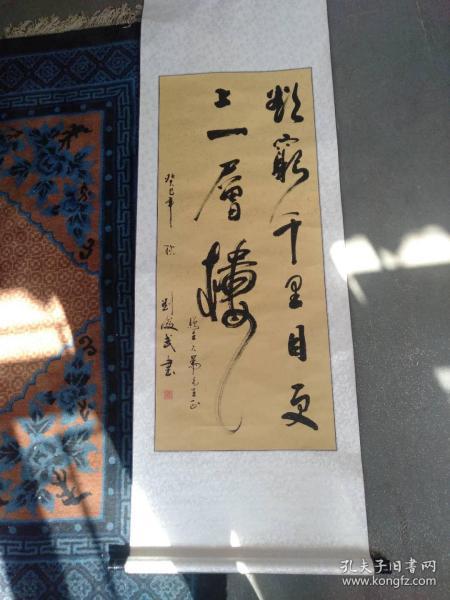 欲窮千里目更
上一層樓
癸巳年秋
劉波武書
孔夫子旧书网
www.kongfz.com